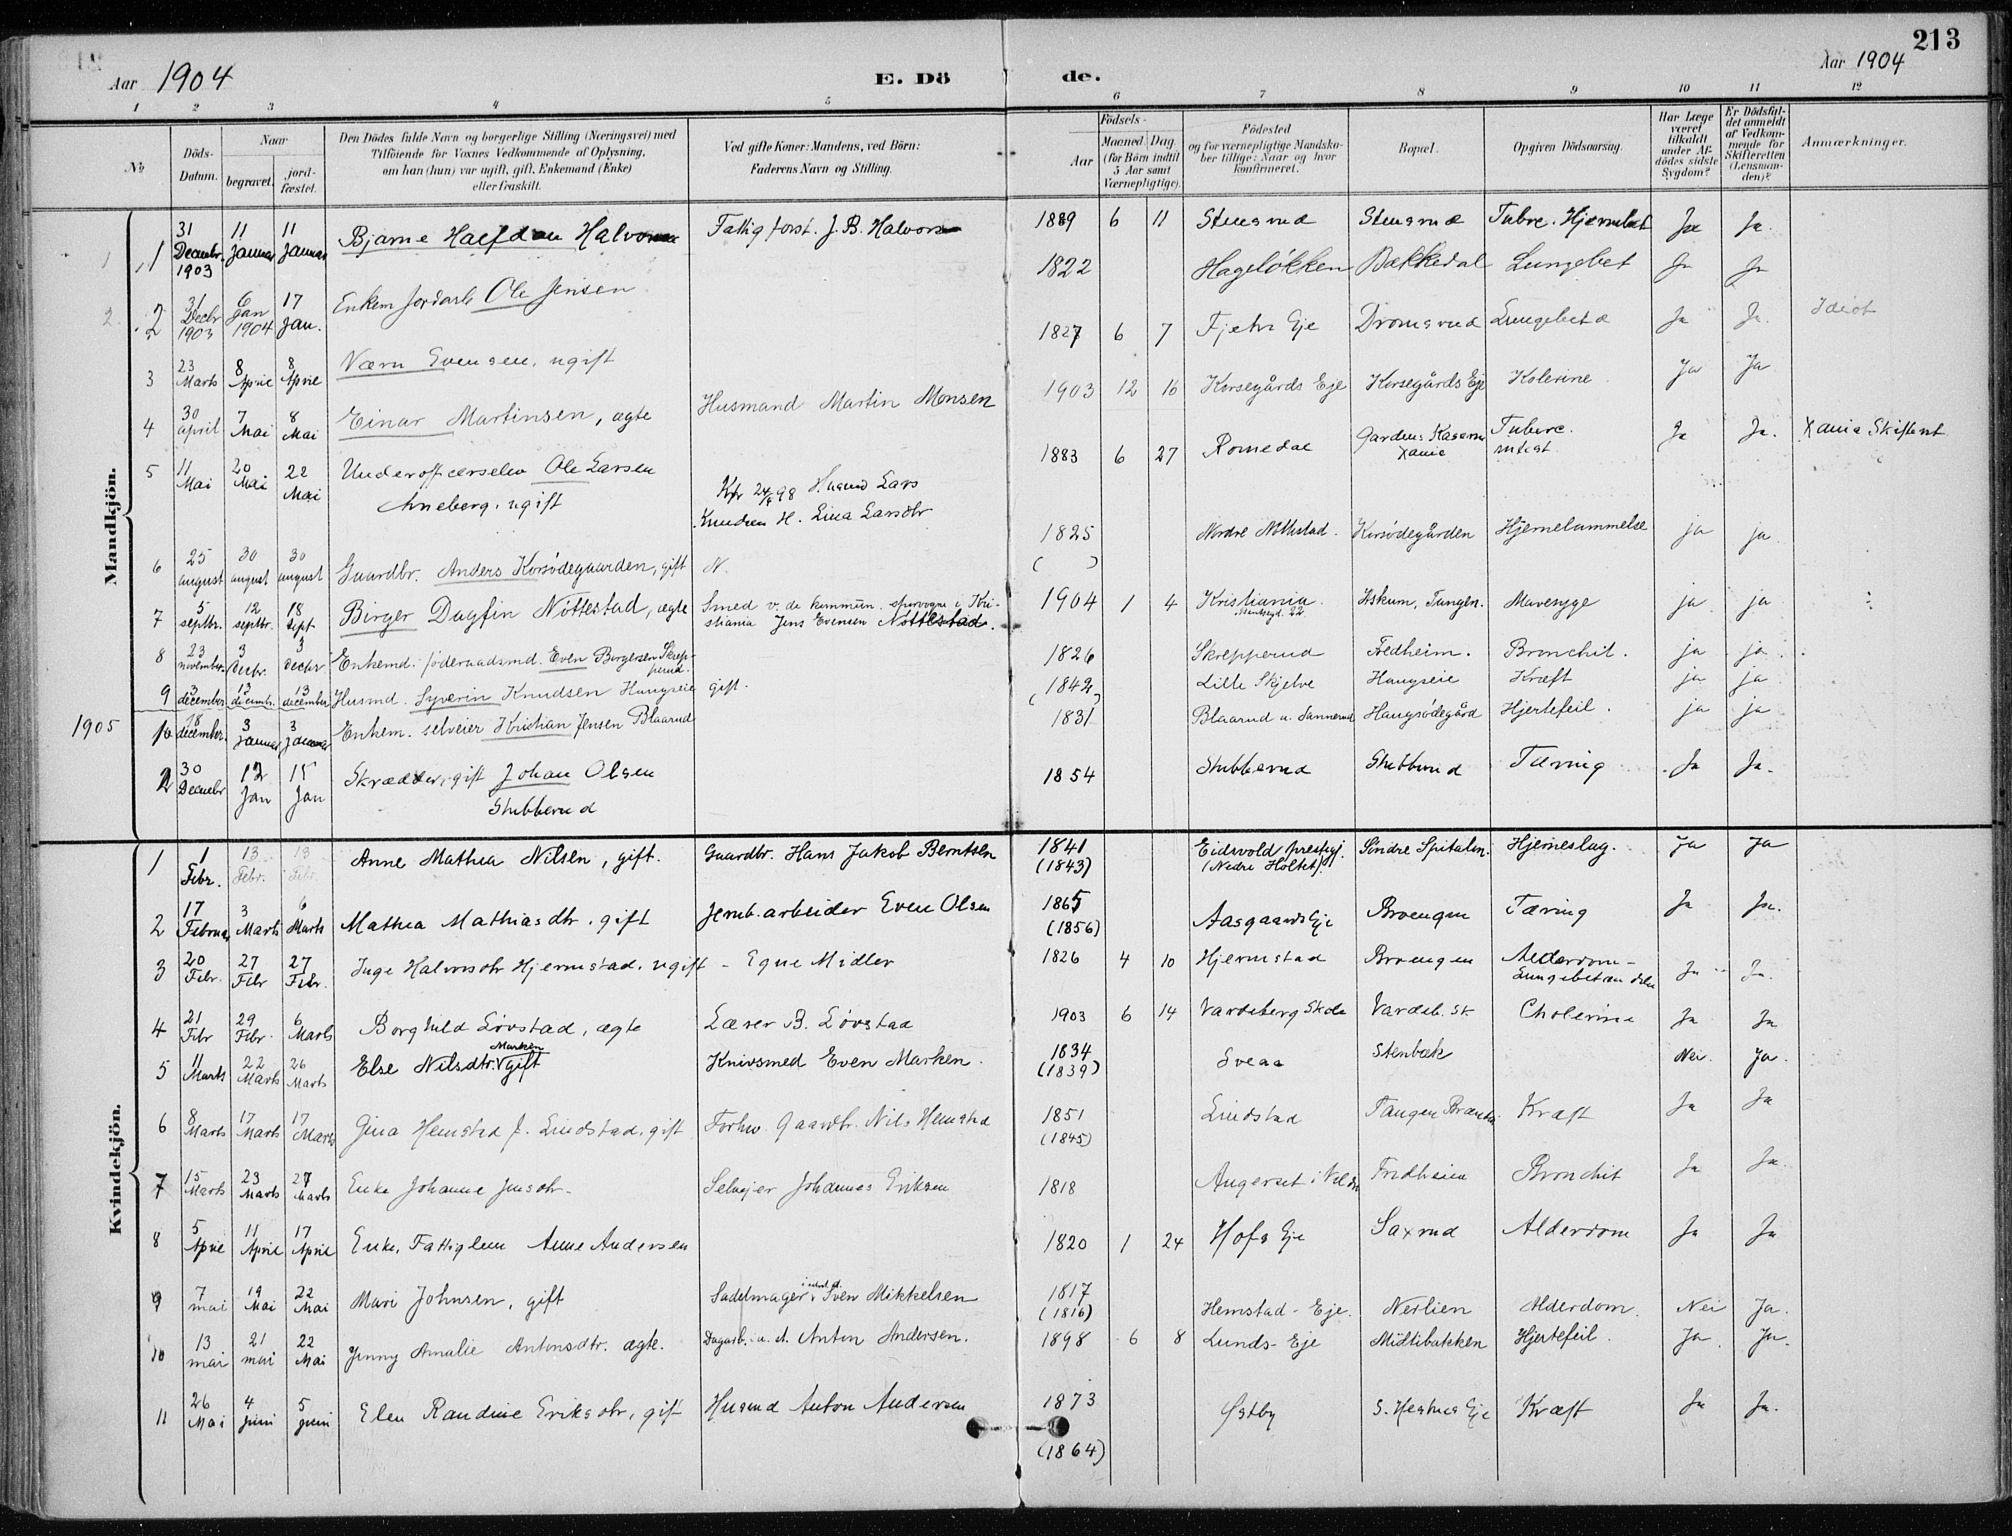 213
Aar 1904
E. Dö
de.
Aar 1904
1 2 3 4 5 6 7 8 9 10 11 12
No
Döds-Datum.
Naar
begravet.
jord-fæstet.
Den Dödes fulde Navn og borgerlige Stilling (Næringsvei) med
Tilföiende for Voxnes Vedkommende af Oplysning,
om han (hun) var ugift, gift, Enkemand (Enke)
eller fraskilt.
Ved gifte Koner: Mandens, ved Börn:
Faderens Navn og Stilling.
Födsels-
Aar
Maaned Dag
(for Börn indtil
5 Aar samt
Værnepligtige).
Födested
og for værnepligtige Mandska-
ber tillige: Naar og hvor
konfirmeret.
Bopæl.
Opgiven Dödsaarsag.
Har Læge
været
tilkaldt
under Af-
dödes sidste
Sygdom?
Er Dödsfal-
det anmeldt
af Vedkom-
mende for
Skifteretten
(Lensman-
den)?
Anmærkninger.
Mandkjön.
1 31 Decembr. 1903 11 Januar 11 Januar Bjarne Halfdan Halvorsen Fattigforst. J. B. Halvorsen 1889 6 11 Stensrud Stensrud Tuberc. Hjernebet Ja Ja.
2 31 Decbr 1903 6 Jan 1904 17 Jan. Enkem Jordarb Ole Jensen 1822 Hageløkken Bækkedal Lungebet Ja Ja
3 23 Marts 8 April 8 April Nærn Evensen, ugift 1827 6 7 Fjetre Eje Dromsrud Lungebetæ Ja Ja. Idiot
4 30 april 7 Mai 8 Mai Einar Martinsen, ægte Husmand Martin Monsen 1903 12 16 Korsegårds Eje Korsegårds Eje Kolerine Ja Ja
5 11 Mai 20 Mai 22 Mai Underofficerselev Ole Larsen 1883 6 27 Romedal Gardens Kaserne Xania Tuberc. Ja Ja. Xania Skifteret
Arneberg, ugift Husmd Lars
Knudsen H. Lina Larsdtr
6 25 august 30 august 30 august Gaardbr. Anders Korsødegaarden, gift N. 1825 ( ) Nordre Nottestad. Korsødegården Hjernelammelse ja ja.
7 5 septbr. 12 septbr. 18 Sept. Birger Dagfin Nöttestad, ægte Smed v. de kommun. sporvogne i Kri-
stiania Jens Evensen Nöttestad. 1904 1 4 Kristiania. Askum, Tangen. Mavesyge ja ja
8 23 november 3 Decbr. 3 Decbr Enkemd. föderaadsmd. Even Borgersen Skrep-
perud. 1826 Skrepperud Fredheim. Bronchit. ja ja
9 3 december 13 decembr. 13 december Husmd. Syverin Knudsen Haugseie gift. 1842 ( ) Lille Skjelve Haugseie Kræft ja ja
1905 1 18 december. 3 Januar 3 Januar Enkem. selveier Kristian Jensen Blaarud 1831 Blaarud u. Sannerud Haugsödegård Hjertefeil. ja ja
2 30 Decembr 12 Jan 15 Jan Skrædder, gift Johan Olsen
Stubberud 1854 Stubberud Stubberud Tæring Ja Ja.
Kvindekjön.
1 1 Febr. 13 Febr. 13 Febr. Anne Mathea Nilsen, gift. Gaardbr. Hans Jakob Berntsen 1841 (1843) Eidsvold prestgj. (Nedre Holtet). Söndre Spitalen. Hjerneslag. Ja Ja
2 17 Februar 3 Marts 6 Marts Mathea Mathiasdtr. gift Jernb. arbeider Even Olsen 1865 (1856) Aasgaards Eje Broengen Tæring Ja Ja.
3 20 Febr. 27 Febr 27 Febr. Inge Halvorsdtr Hjermstad. ugift - Egne Midler 1826 4 10 Hjermstad Broengen Alderdom-
Ja Ja.
4 21 Febr 29 Febr. 6 Marts Borghild Lövstad, ægte Lærer B. Lövstad 1903 6 14 Vardeberg Skole Vardeb. Sk Cholerine Ja Ja
5 11 Marts 22 Marts 26 Marts Else Nilsdtr. Marken gift Knivsmed Even Marken. 1834 (1839) Sveaa Stenbæk Nei. Ja.
6 8 Marts 17 Marts 17 Marts Gina Hemstad f. Lindstad, gift Forhv. Gaardbr. Nils Hemstad 1851 (1845) Lindstad Tangen Kræft Ja Ja
7 15 Marts 23 Marts 27 Marts Enke Johanne Jensdtr. Selvejer Johannes Eriksen 1818 Angerset i Fredheim Bronchit Ja Ja
8 5 April 11 April 17 April Enke, Fattiglem Anne Andersen 1820 1 24 Hofs Eje Saxrud Alderdom Ja Ja
9 7 mai 19 Mai 22 Mai Mari Johnsen, gift Sadelmager Sven Mikkelsen 1817 (1816) Hemstad-Eje. Nerlien Alderdom. Nei Ja.
10 13 mai 21 mai 22 Mai Jenny Amalie Antonsdtr. ægte. Dagarb. u. A. Anton Andersen. 1898 6 8 Lunds-Eje Midtibakken Hjertefeil. Ja. Ja.
11 26 Mai 4 Juni 5 Juni Elen Randine Eriksdtr, gift Husmd Anton Andersen 1873 (1864) Østby S. Hestnes Eje Kræft Ja Ja.